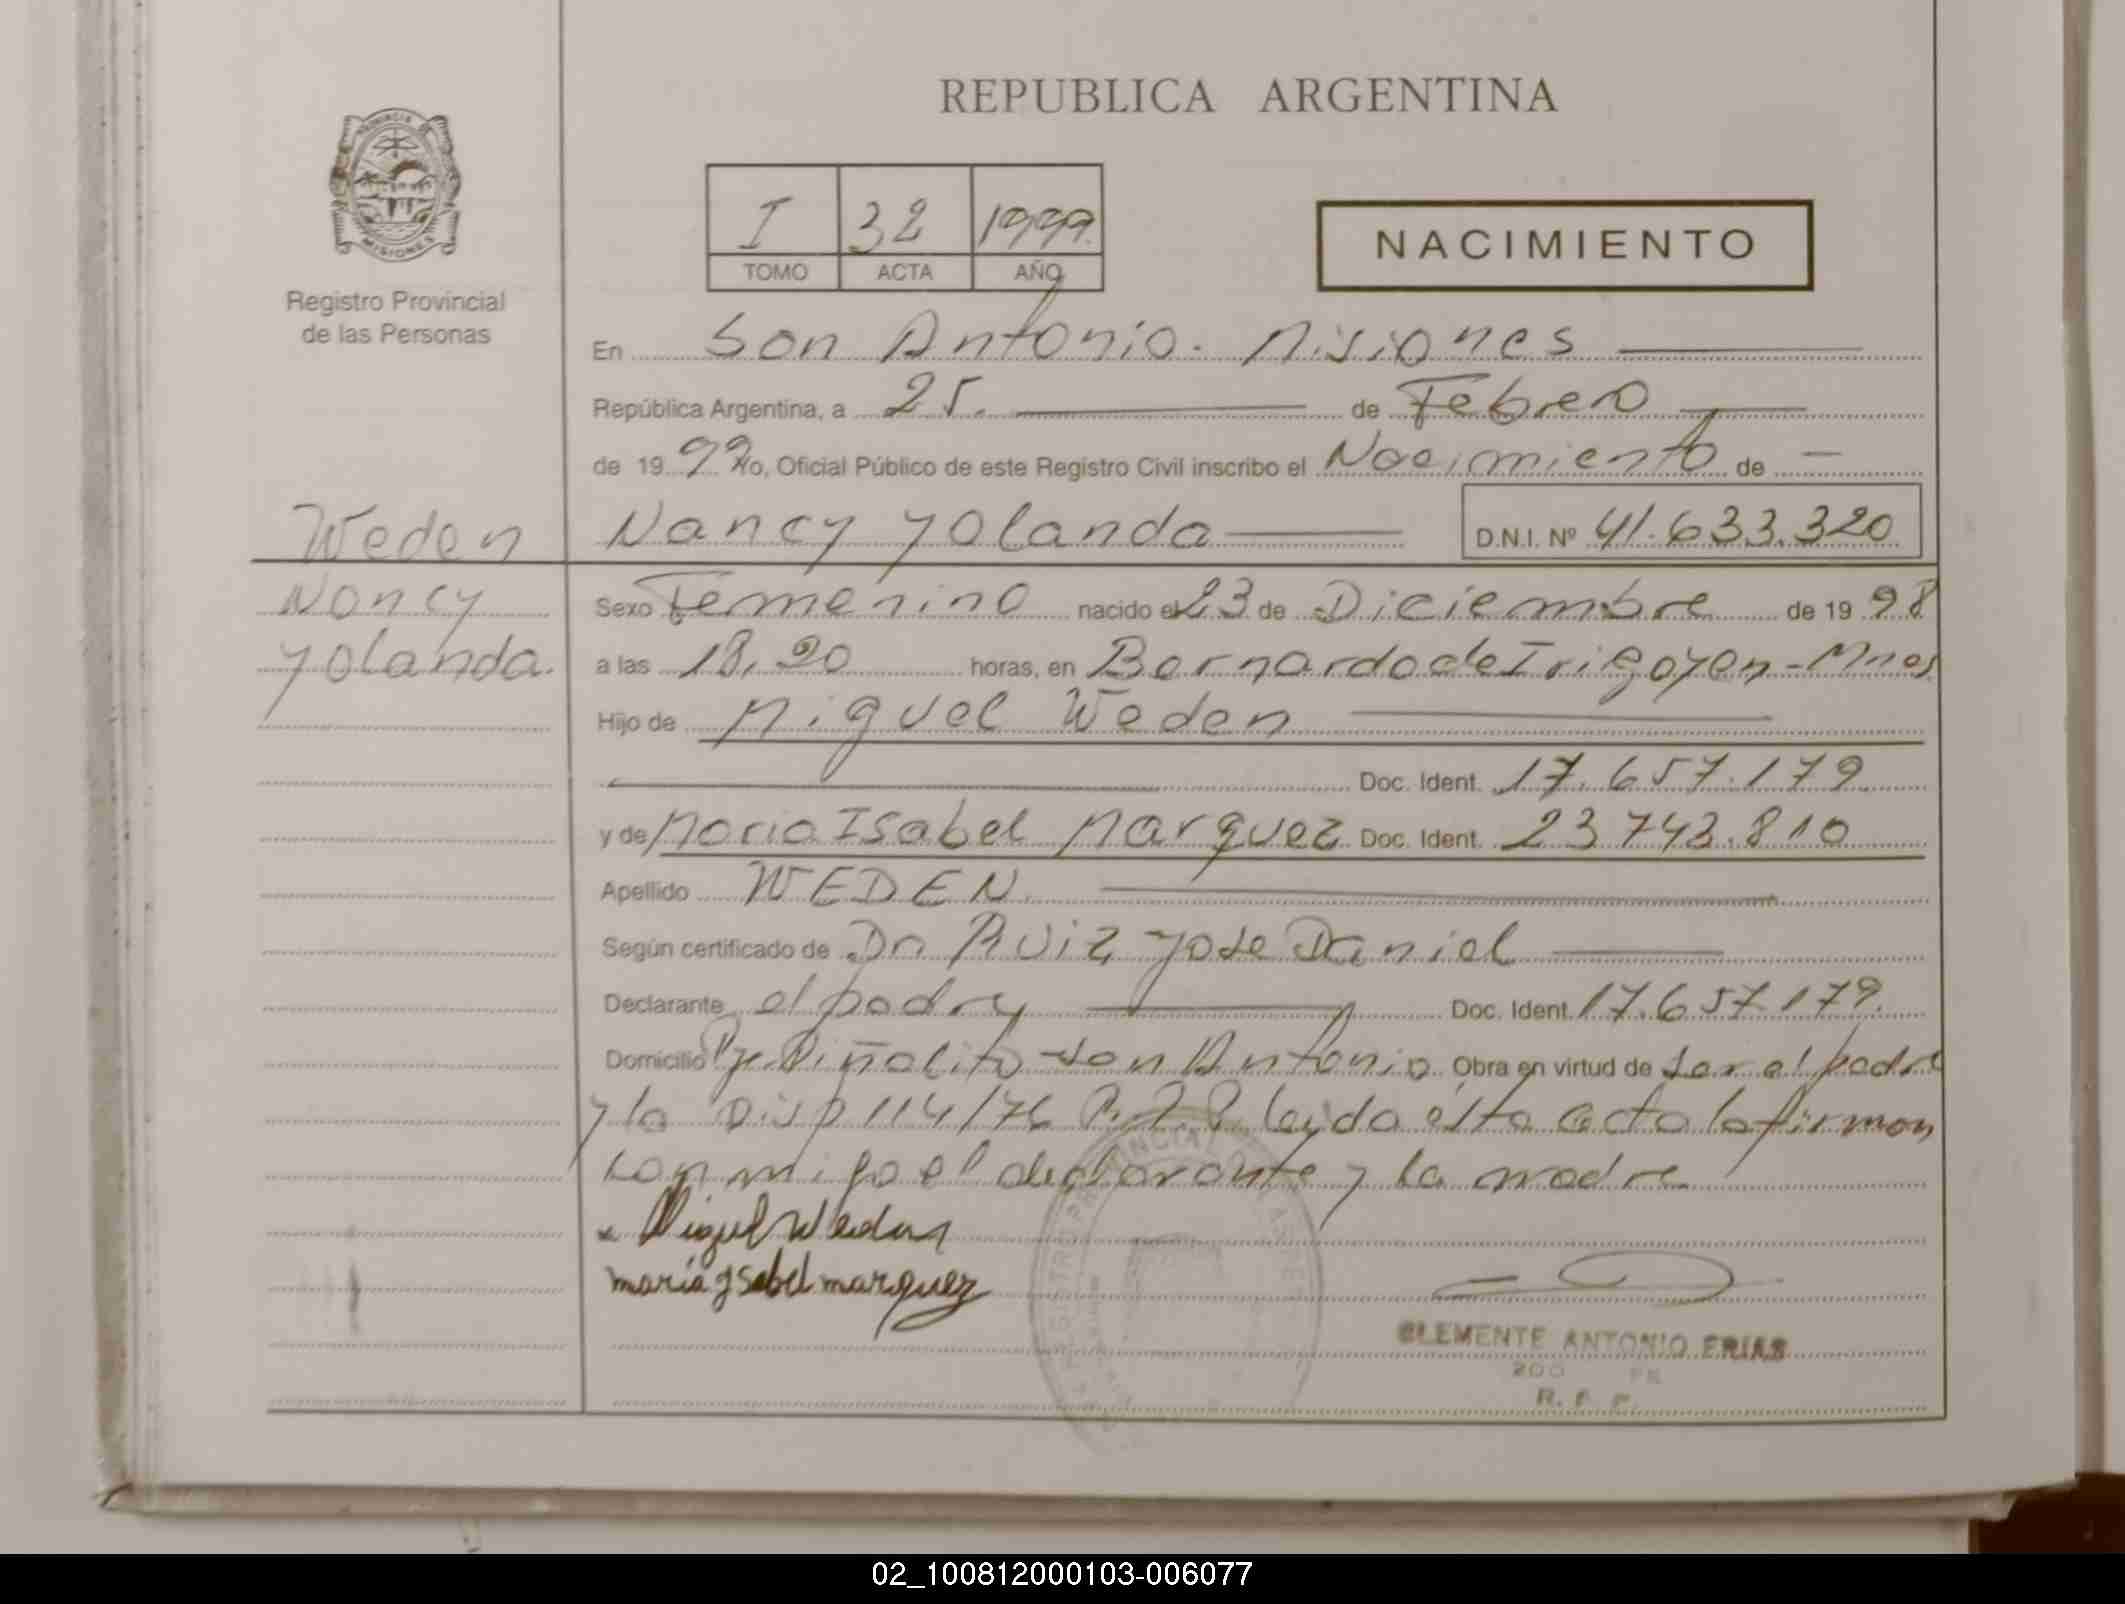 REPUBLICA ARGENTINA
PROVINCIA DE
MISIONES
Registro Provincial
de las Personas
I 32 1999
TOMO ACTA AÑO
NACIMIENTO
En San Antonio. Misiones
República Argentina, a 25. de Febrero
de 19 99 Yo, Oficial Público de este Registro Civil inscribo el Nacimiento de
Weden
Nancy Yolanda
Nancy Yolanda D.N.I. Nº 41.633.320
Sexo Femenino nacido el 23 de Diciembre de 19 98
a las 18,20 horas, en Bernardo de Irigoyen - Mnes
Hijo de Miguel Weden
Doc. Ident. 17.657.179
y de Maria Isabel Marquez Doc. Ident. 23 743.810
Apellido WEDEN
Según certificado de Dr Ruiz Jose Daniel
Declarante el padre Doc. Ident. 17.657.179.
Domicilio Piñalito San Antonio Obra en virtud de ser el padre
y la Disp 114/76 leida esta acta la firman
conmigo el declarante y la madre
Miguel Weden
maria Isabel marquez
CLEMENTE ANTONIO FRIAS
02_100812000103-006077